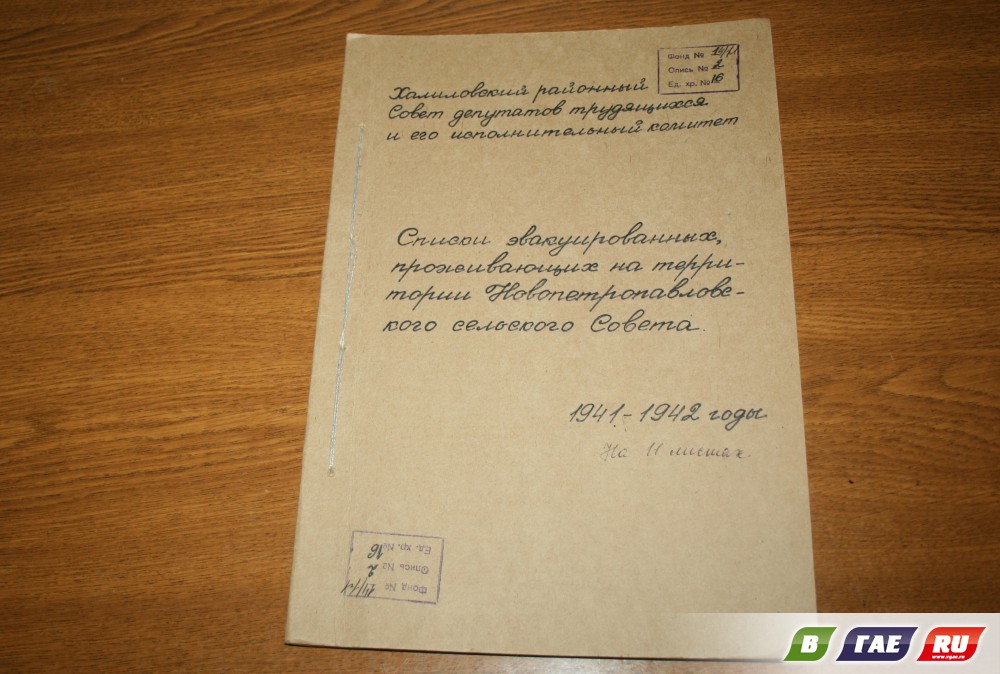 Фонд №
Опись № 2
Ед. хр. № 16
Халиловский районный
Совет депутатов трудящихся
и его исполнительный комитет
Списки эвакуированных,
проживающих на терри-
тории Новопетропавловс-
кого сельского Совета.
1941-1942 годы
На 11 листах
Фонд №
Опись № 2
Ед. хр. № 16
В ГАЕ RU
www.vgae.ru